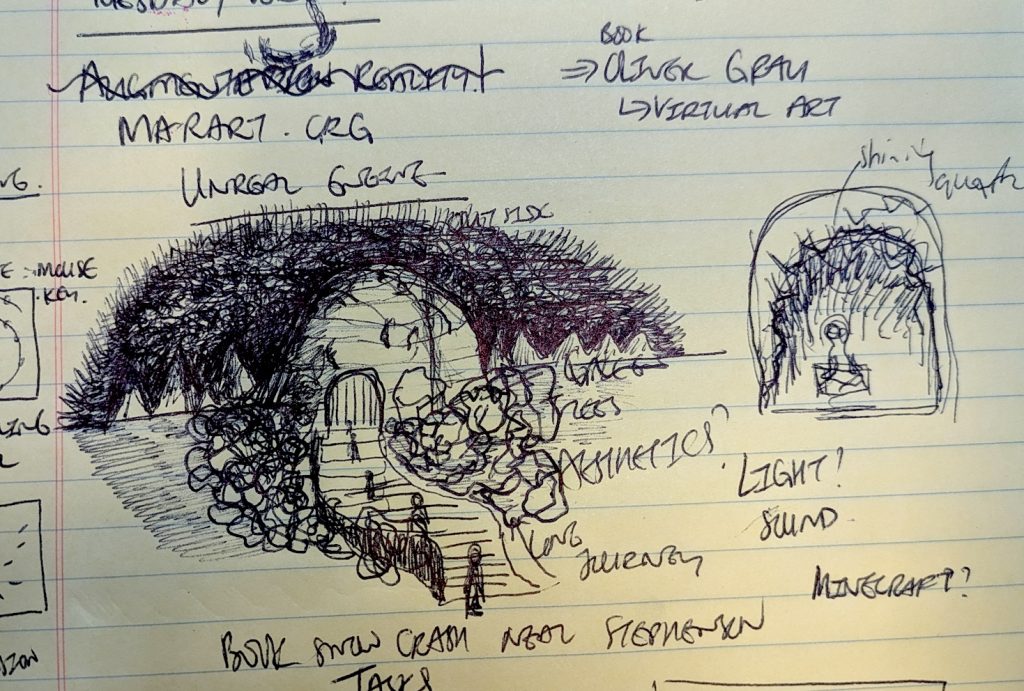 AUGMENTED REALITY!
MARART.ORG
UNREAL ENGINE
BOOK
⇒ OLIVER GRAU
↳ VIRTUAL ART
shiny
quartz
MOUSE
KEY.
TREES
AESTHETICS
LIGHT!
SOUND
LONG
JOURNEY
MINECRAFT?
BOOK SNOW CRASH NEAL STEPHENSON
TALKS